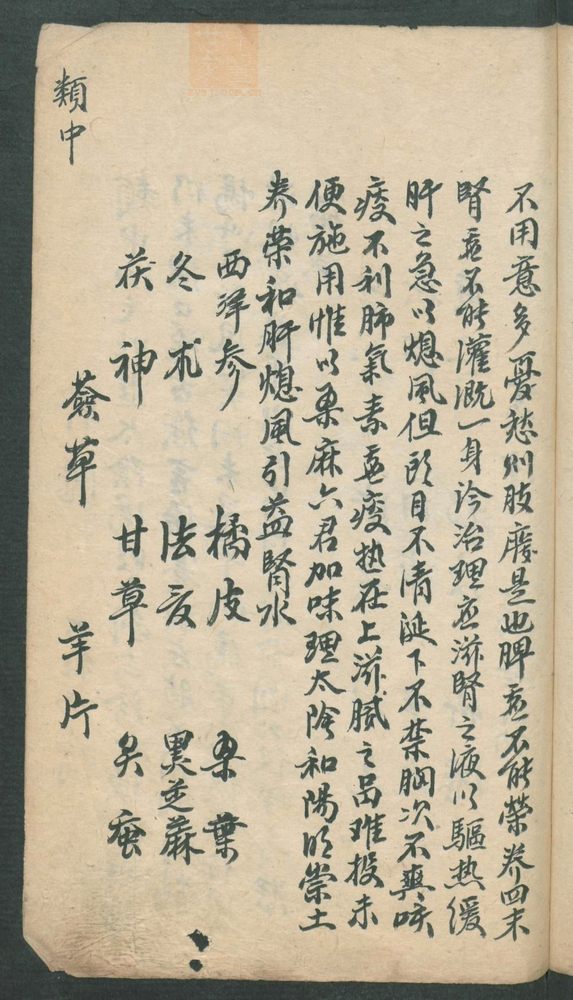 不用意多憂愁則肢廢是也脾虛不能榮养四末
腎虛不能灌溉一身診治理应滋腎之液以驅热缓
肝之急以熄風但頭目不清涎下不禁胸次不爽咳
痰不利肺氣素虛痰热在上滋膩之品难投未
便施用惟以桑麻六君加味理太陰和陽明崇土
养荣和肝熄風引益腎水
西洋参 橘皮 桑葉
冬朮 法夏 黑芝蔴
茯神 甘草 殭蚕
薟草 羊片
類中